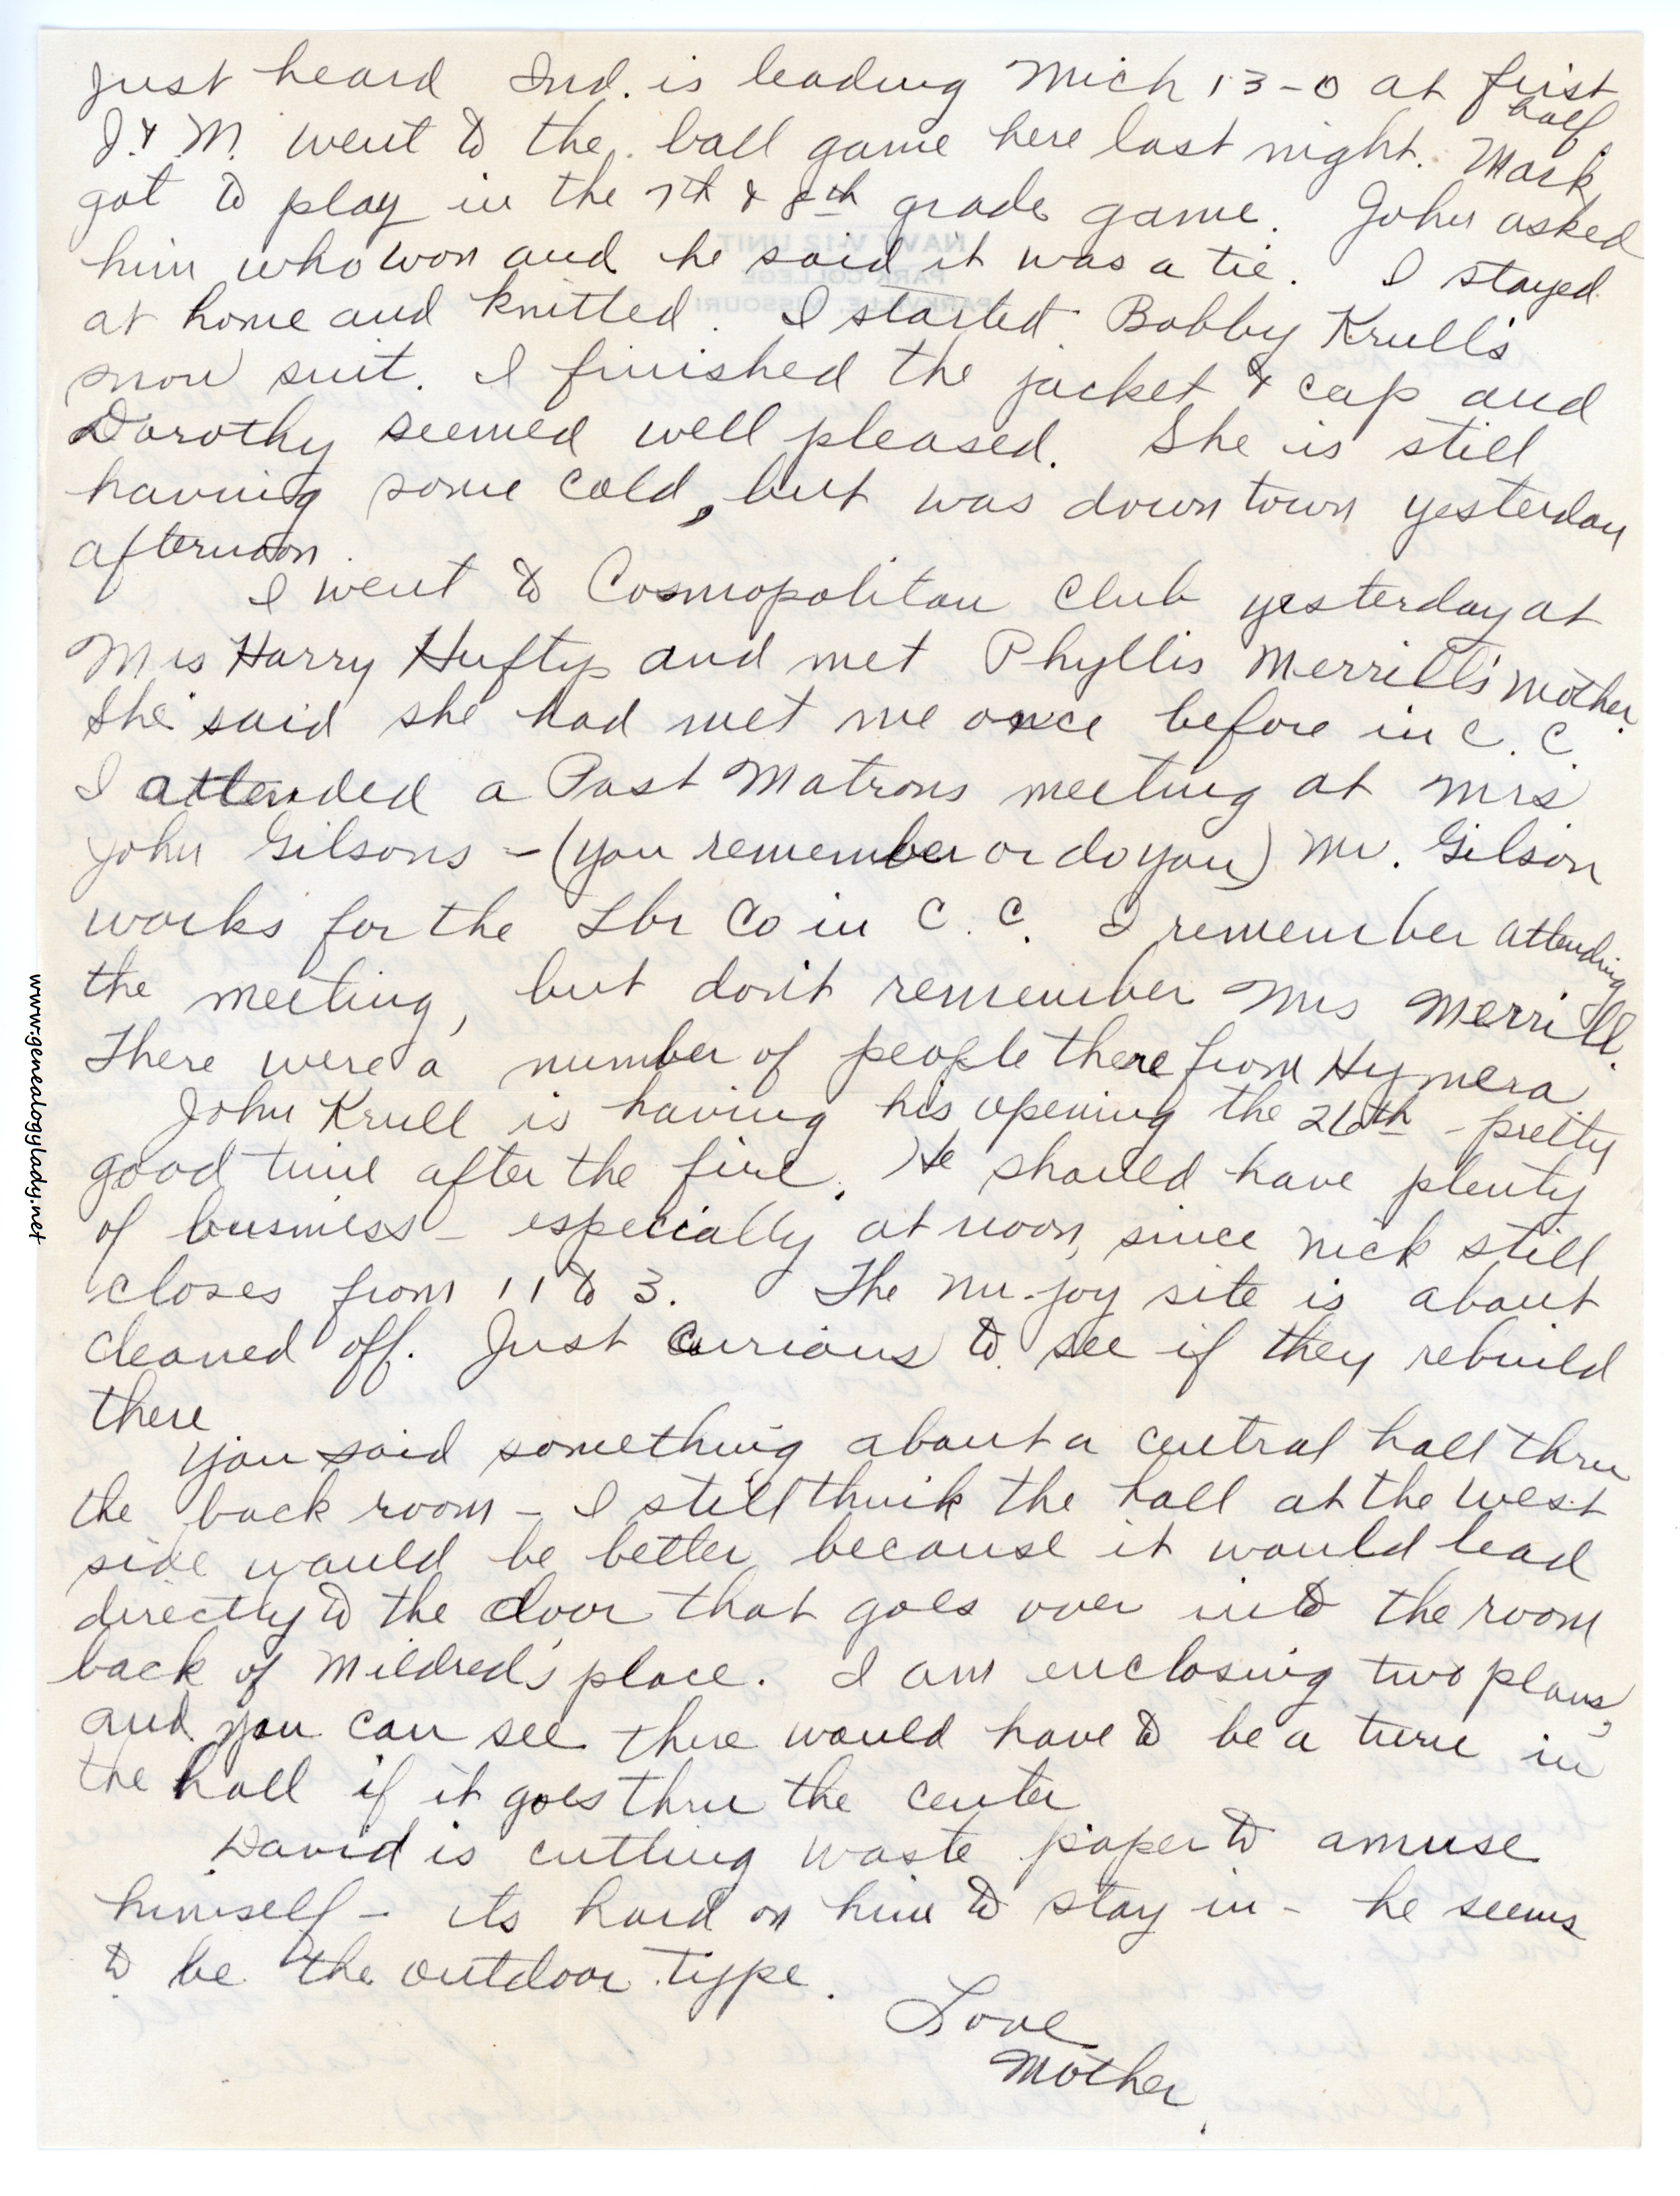 Just heard Ind. is leading Mich 13-0 at first half
J. & M. went to the ball game here last night. Mark
got to play in the 7th & 8th grade game. John asked
him who won and he said it was a tie. I stayed
at home and knitted. I started Bobby Krull's
snow suit. I finished the jacket & cap and
Dorothy seemed well pleased. She is still
having some cold, but was down town yesterday
afternoon.
I went to Cosmopolitan Club yesterday at
Mrs Harry Hufty and met Phyllis Merrill's mother.
She said she had met me once before in C. C.
I attended a Past Matrons meeting at Mrs
John Gilsons - (you remember or do you) Mr. Gilson
works for the Lbr Co in C. C. I remember attending
the meeting, but don't remember Mrs Merrill.
There were a number of people there from Hymera.
John Krull is having his opening the 26th - pretty
good time after the fire. He should have plenty
of business - especially at noon, since Nick still
closes from 11 to 3. The Nu-joy site is about
cleaned off. Just curious to see if they rebuild
there
You said something about a central hall thru
the back room - I still think the hall at the west
side would be better because it would lead
directly to the door that goes over into the room
back of Mildred's place. I am enclosing two plans,
and you can see there would have to be a turn in
the hall if it goes thru the center
David is cutting waste paper to amuse
himself - its hard on him to stay in - he seems
to be the outdoor type.
Love
Mother.
www.genealogylady.net
NAVY V-12 UNIT
PARK COLLEGE
PARKVILLE, MISSOURI